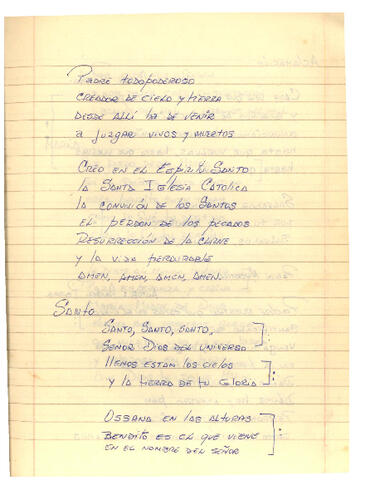 Padre todopoderoso
creador de cielo y tierra
desde allí ha de venir
a juzgar vivos y muertos
Creo en el Espíritu Santo
la Santa Iglesia Catolica
la comunión de los Santos
el perdon de los pecados
Resurrección de la carne
y la vida perdurable
amen, amen, amen, amen.
Santo
Santo, Santo, Santo,
Señor Dios del universo
llenos estan los cielos
y la tierra de tu Gloria
Ossana en las alturas
Bendito es el que viene
en el nombre del Señor